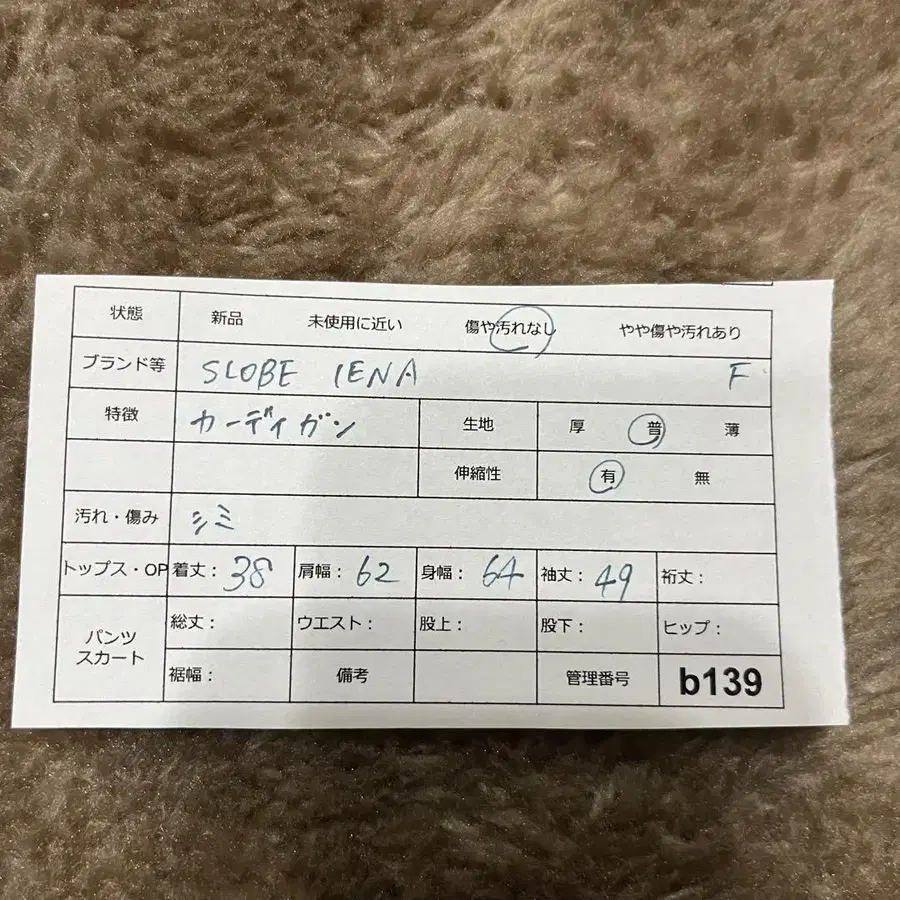 状態 新品 未使用に近い 傷や汚れなし やや傷や汚れあり
ブランド等 SLOBE IENA F
特徴 カーディガン 生地 厚 普 薄
伸縮性 有 無
汚れ・傷み シミ
トップス・OP 着丈: 38 肩幅: 62 身幅: 64 袖丈: 49 裄丈:
パンツ スカート 総丈: ウエスト: 股上: 股下: ヒップ:
裾幅: 備考 管理番号 b139